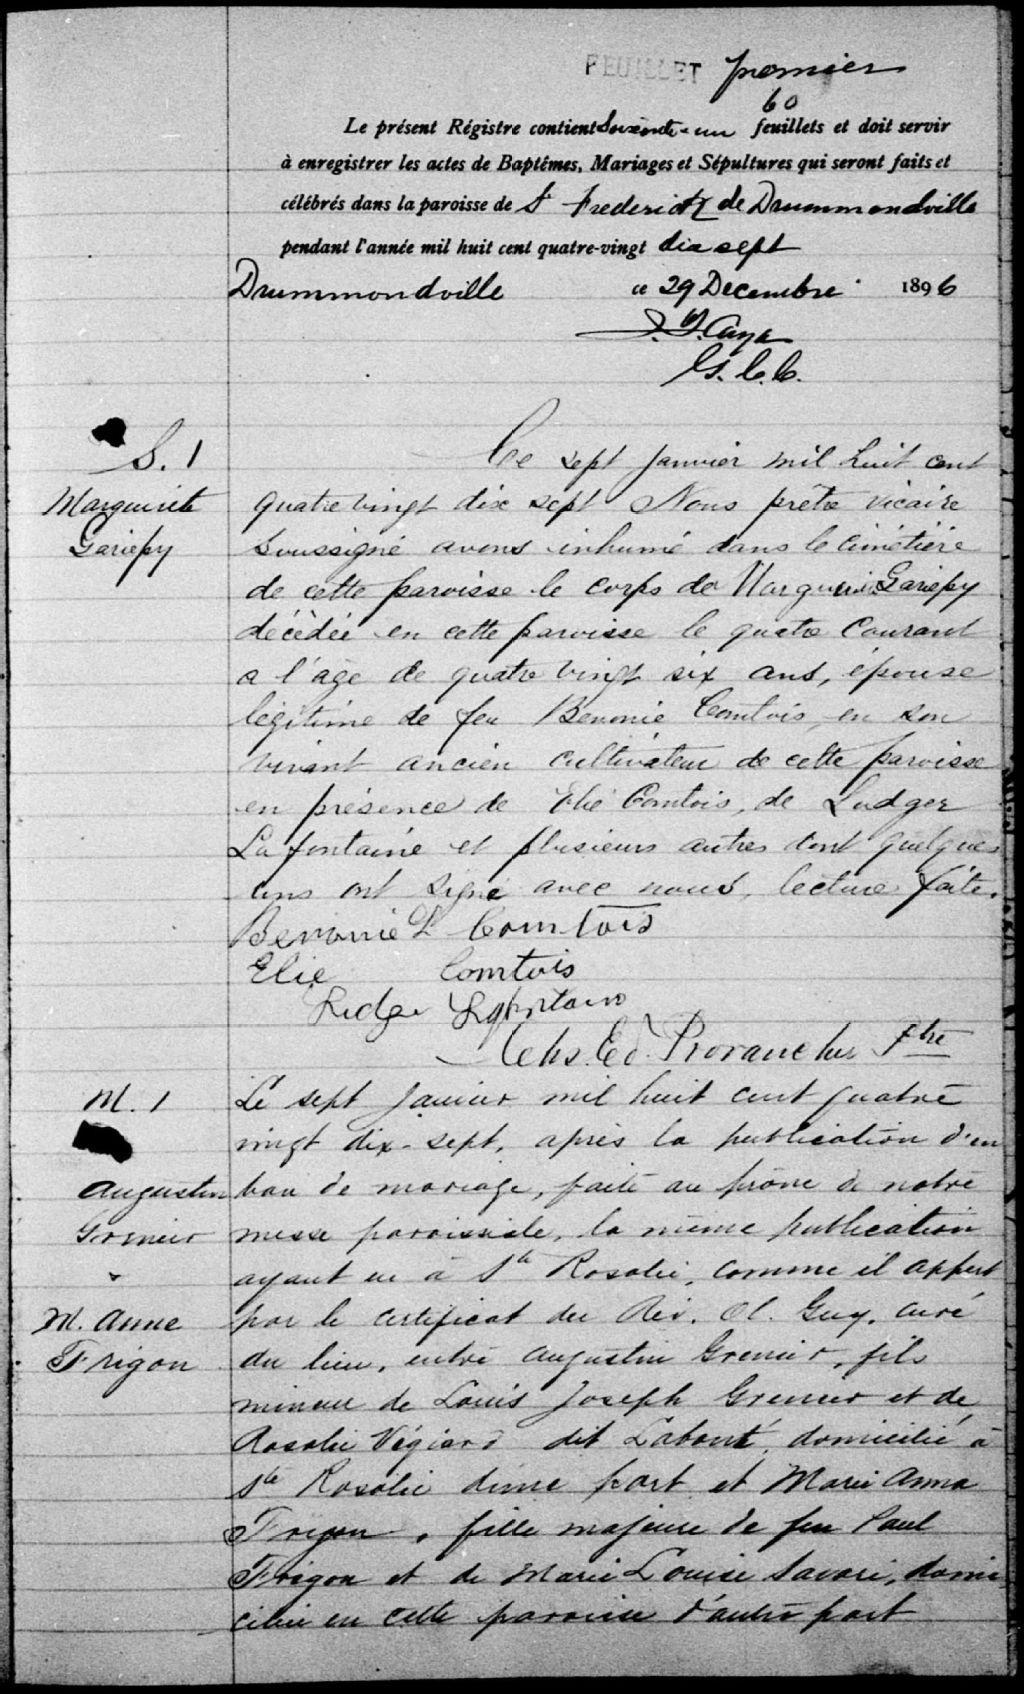 FEUILLET premier
60
Le présent Régistre contient Soixante-un feuillets et doit servir
à enregistrer les actes de Baptêmes, Mariages et Sépultures qui seront faits et
célébrés dans la paroisse de St Frederick de Drummondville
pendant l'année mil huit cent quatre-vingt dix sept
Drummondville ce 29 Decembre 1896
G. C. C.
S. 1
Marguerite
Gariepy
Ce sept janvier mil huit cent
quatre vingt dix sept Nous prêtre vicaire
Soussigné avons inhumé dans le cimetière
de cette paroisse le corps de Marguerite Gariepy
décédée en cette paroisse le quatre Courant
a l'age de quatre vingt six ans, épouse
légitime de feu Benonie Comtois, en son
vivant ancien cultivateur de cette paroisse
en présence de Elie Comtois, de Ludger
Lafontaine et plusieurs autres dont quelques
uns ont signé avec nous, lecture faite.
Benonie L Comtois
Elie Comtois
Ed. Provancher Ptre
M. 1
Augustin
Grenier
M. Anne
Frigon
Le sept janvier mil huit cent quatre
vingt dix-sept, après la publication d'un
ban de mariage, faite au prône de notre
messe paroissiale, la même publication
ayant eu à Ste Rosalie, comme il appert
par le certificat du Rév. Ol. Guy, curé
du lieu, entre Augustin Grenier, fils
mineur de Louis Joseph Grenier et de
Rosalie Végiard dit Labonté, domicilié à
Ste Rosalie d'une part et Marie Anna
Frigon, fille majeure de feu Paul
Frigon et de Marie Louise Savoie, domi
ciliée en cette paroisse d'autre part